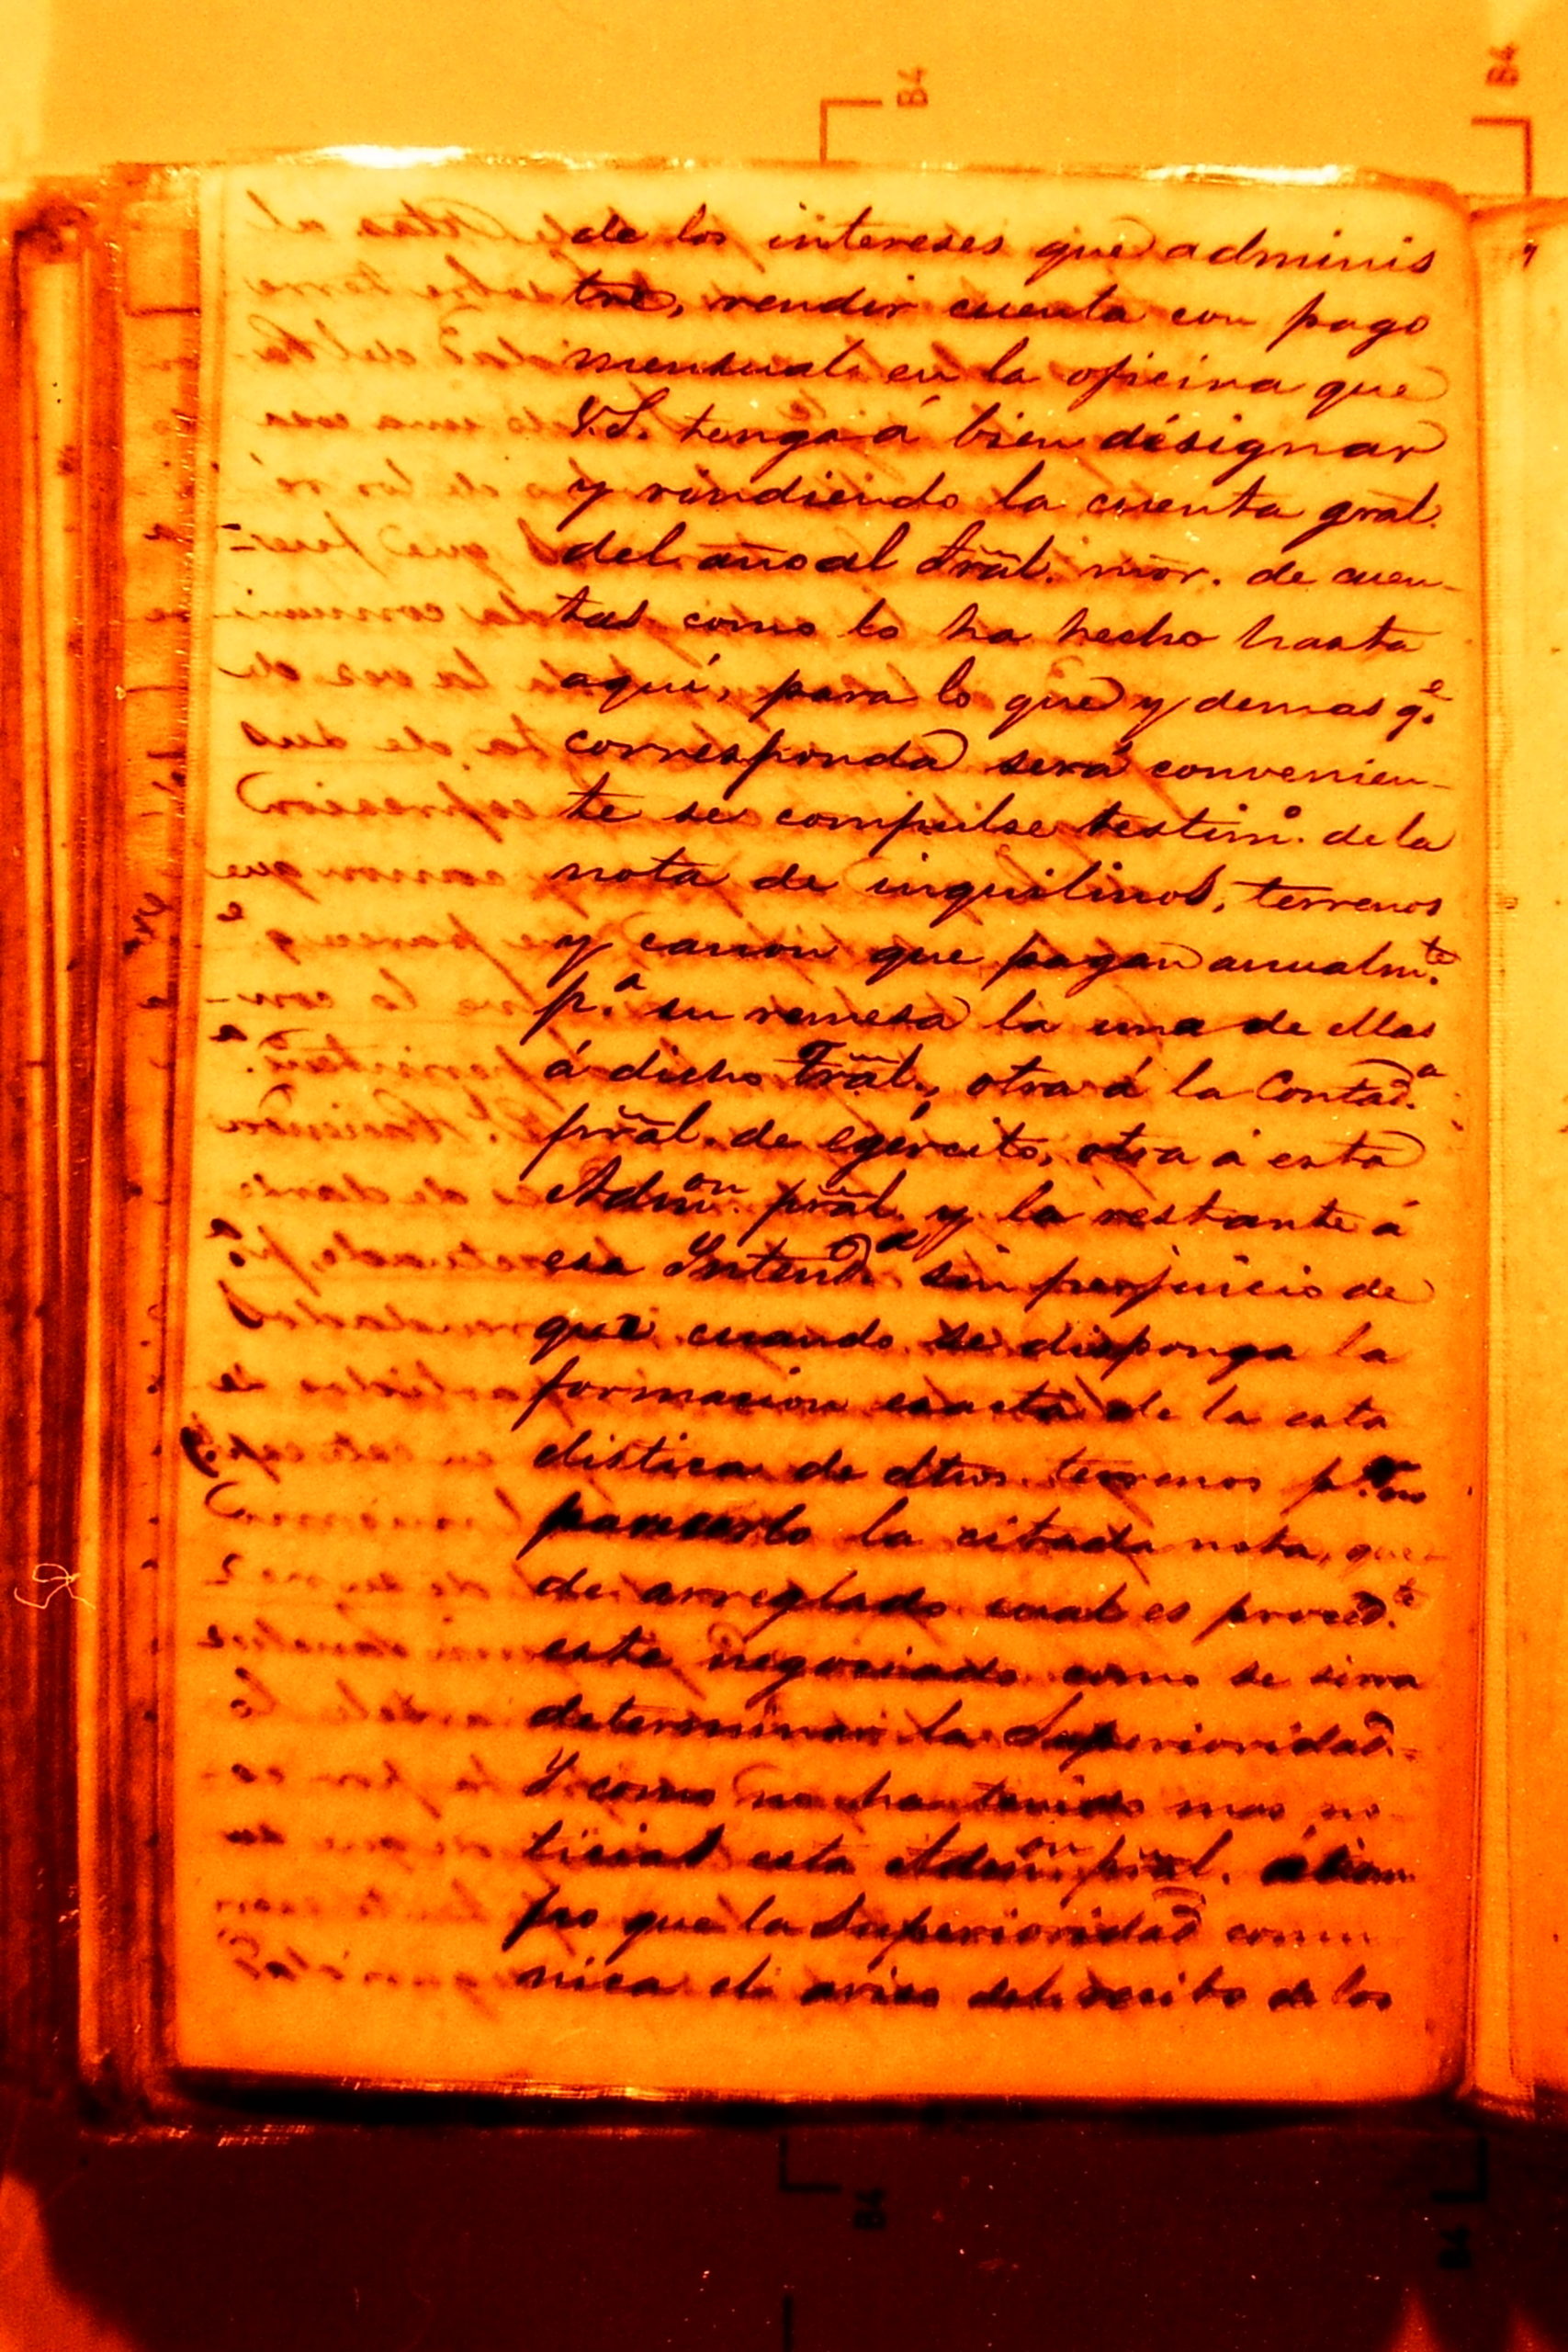 de los intereses que adminis
tre, rendir cuenta con pago
mensual en la oficina que
V.S. tenga á bien designar
y rindiendo la cuenta gral.
del año al Trãl. mõr. de cuen-
tas como lo ha hecho hasta
aquí, para lo que y demas q.e
corresponda será convenien-
te se compulse testim.o de la
nota de inquilinos, terrenos
y canon que pagan anualm.te
p.a su remesa la una de ellas
á dicho Trãl., otra á la Contad.a
prãl. de egército, otra á esta
Adm.on prãl. y la restante á
esa Intend.a sin perjuicio de
que cuando se disponga la
formacion exacta de la esta
distica de dhos. terrenos
la citada nota, que-
de arreglado cual es proced.te
este negociado como se sirva
determinar la Superioridad.
Y como no ha tenido mas no
ticias esta Adm.on prãl. átiem
po que la Superioridad comu
nica el aviso del recibo de los
B4
B4
B4
B4